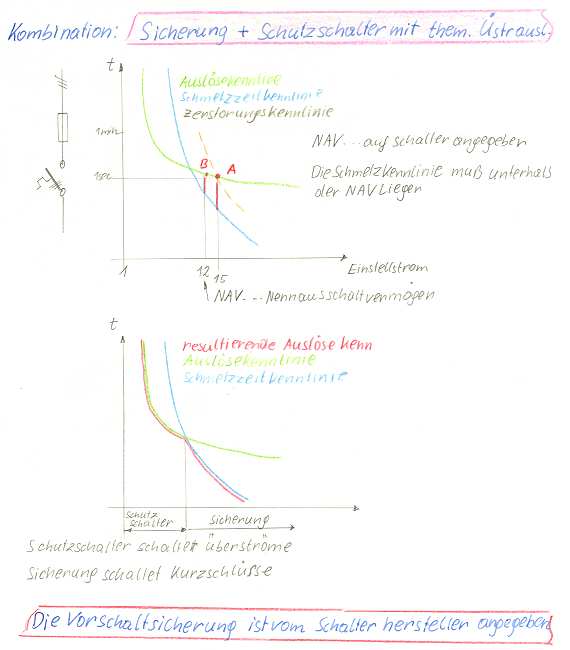 Kombination: Sicherung + Schutzschalter mit them. Üstrausl.
t
Auslösekennlinie
Schmelzzeitkennlinie
Zerstörungskennlinie
1min
NAV... auf Schalter angegeben
B A
1sec
Die Schmelzkennlinie muß unterhalb
der NAV Liegen
1 12 15
Einstellstrom
NAV... Nennausschaltvermögen
t
resultierende Auslöse Kenn
Auslösekennlinie
Schmelzzeitkennlinie
Schutz
schalter
Sicherung
Schutzschalter schaltet überströme
Sicherung schaltet Kurzschlüsse
Die Vorschaltsicherung ist vom Schalter hersteller angegeben